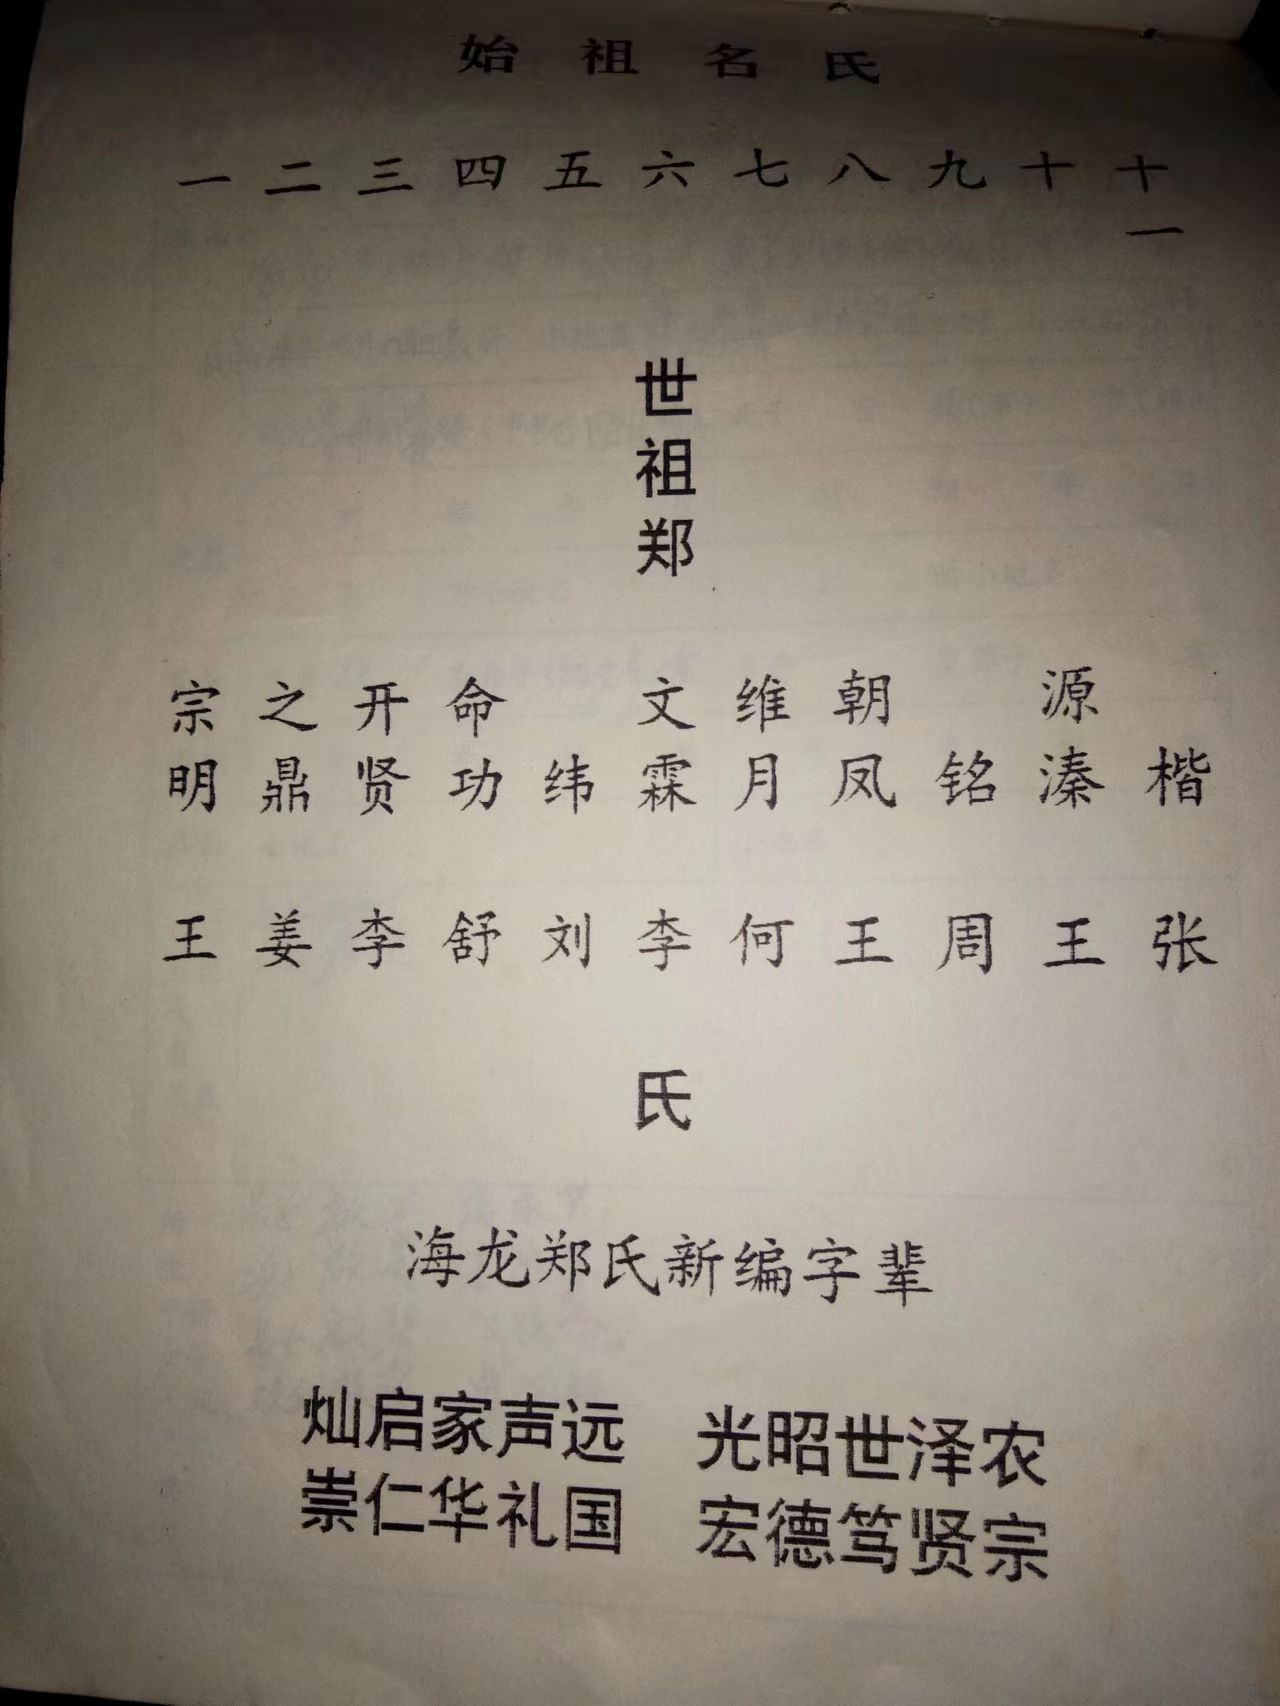 始祖名氏
一 二 三 四 五 六 七 八 九 十 十一
世祖郑
宗明 之鼎 开贤 命功 纬 文霖 维月 朝凤 铭 源溱 楷
王 姜 李 舒 刘 李 何 王 周 王 张
氏
海龙郑氏新编字辈
灿启家声远 光昭世泽农
崇仁华礼国 宏德笃贤宗